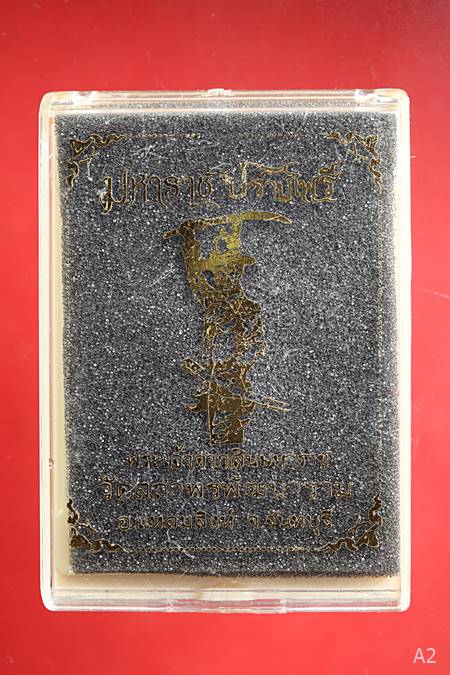 มหาราช ปราบไพรี
พระเจ้าตากสินมหาราช
วัดสถาพรพัฒนาราม
อ.แหลมสิงห์ จ.จันทบุรี
A2